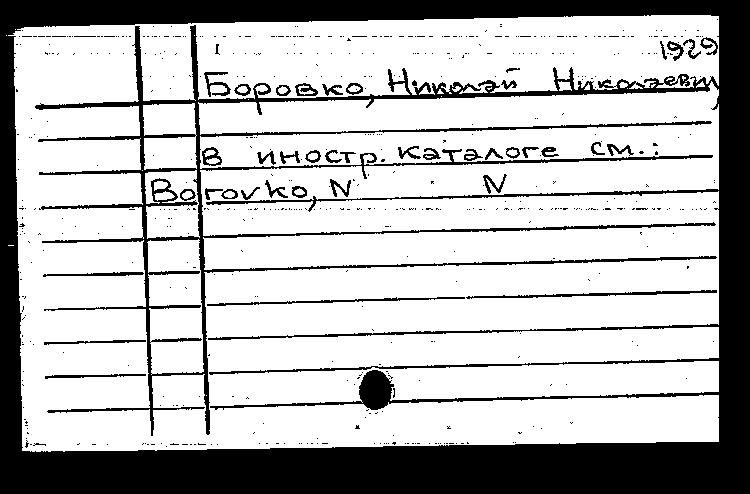 1929
Боровко, Николай Николаевич,
в иностр. каталоге см.:
Borovko, N N